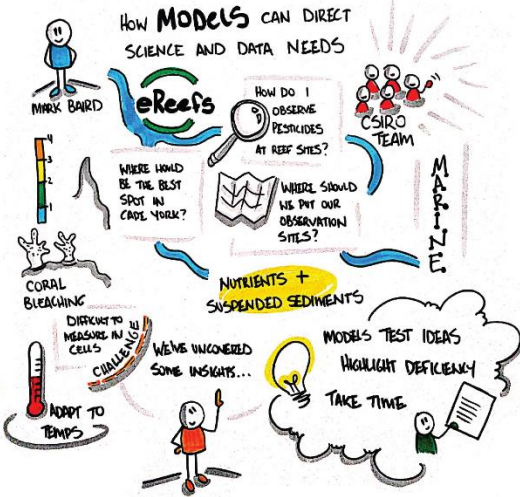 HOW MODELS CAN DIRECT
SCIENCE AND DATA NEEDS
MARK BAIRD
eReefs
HOW DO I
OBSERVE
PESTICIDES
AT REEF SITES?
CSIRO
TEAM
4
3
2
1
WHERE WOULD
BE THE BEST
SPOT IN
CAPE YORK?
WHERE SHOULD
WE PUT OUR
OBSERVATION
SITES?
MARINE
CORAL
BLEACHING
NUTRIENTS +
SUSPENDED SEDIMENTS
DIFFICULT TO
MEASURE IN
CELLS
CHALLENGE
WE'VE UNCOVERED
SOME INSIGHTS...
MODELS TEST IDEAS
HIGHLIGHT DEFICIENCY
TAKE TIME
ADAPT TO
TEMPS